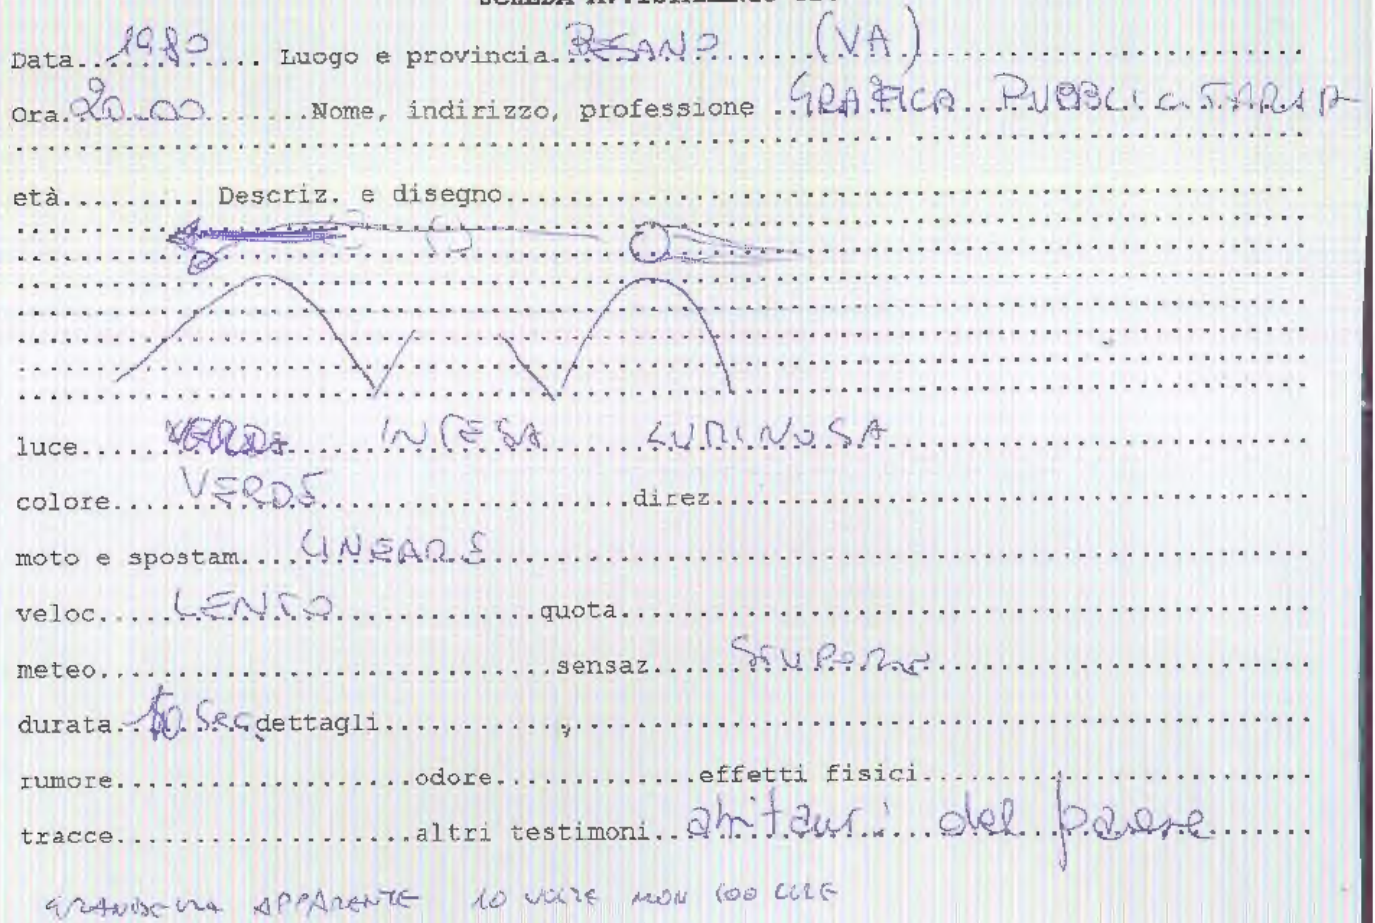 SCHEDA AVVISTAMENTO
Data....1980.... Luogo e provincia..BESANO......(VA.)
Ora.20.00.......Nome, indirizzo, professione ..GRAFICA..PUBBLICITARIA
età......... Descriz. e disegno
luce......VERDE INTESA LUMINOSA
colore....VERDE....direz
moto e spostam....LINEARE
veloc.....LENTO....quota
meteo....sensaz.....STUPORE
durata..10.sec.dettagli
rumore....odore....effetti fisici
tracce....altri testimoni..abitanti...del..paese
GRANDEZZA APPARENTE 10 VOLTE